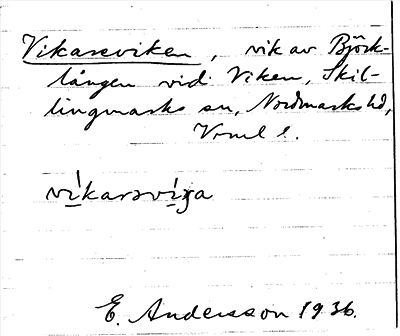 Vikarsviken, vik av Björk-
lången vid Viken, Skil-
lingmarks sn, Nordmarks hd,
Vrml l.
vìkarsvíʒa
E. Andersson 1936.